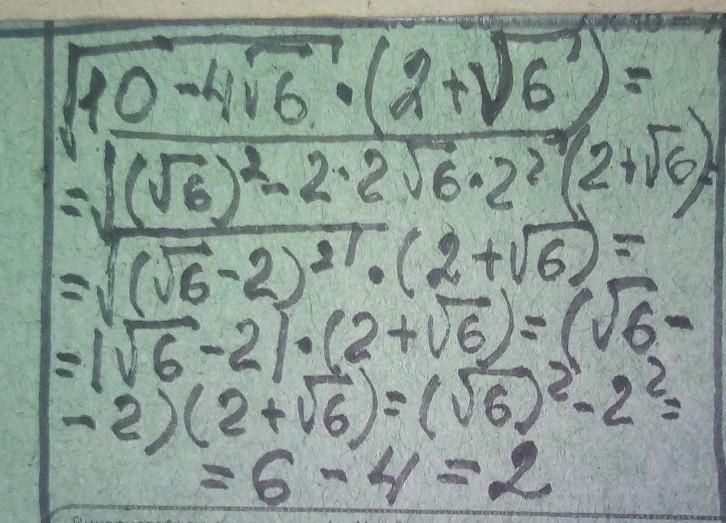 √10 - 4√6 · (2 + √6) =
= √(√6)² - 2 · 2√6 · 2² (2 + √6) =
= √(√6 - 2)² · (2 + √6) =
= |√6 - 2| · (2 + √6) = (√6 -
- 2)(2 + √6) = (√6)² - 2² =
= 6 - 4 = 2